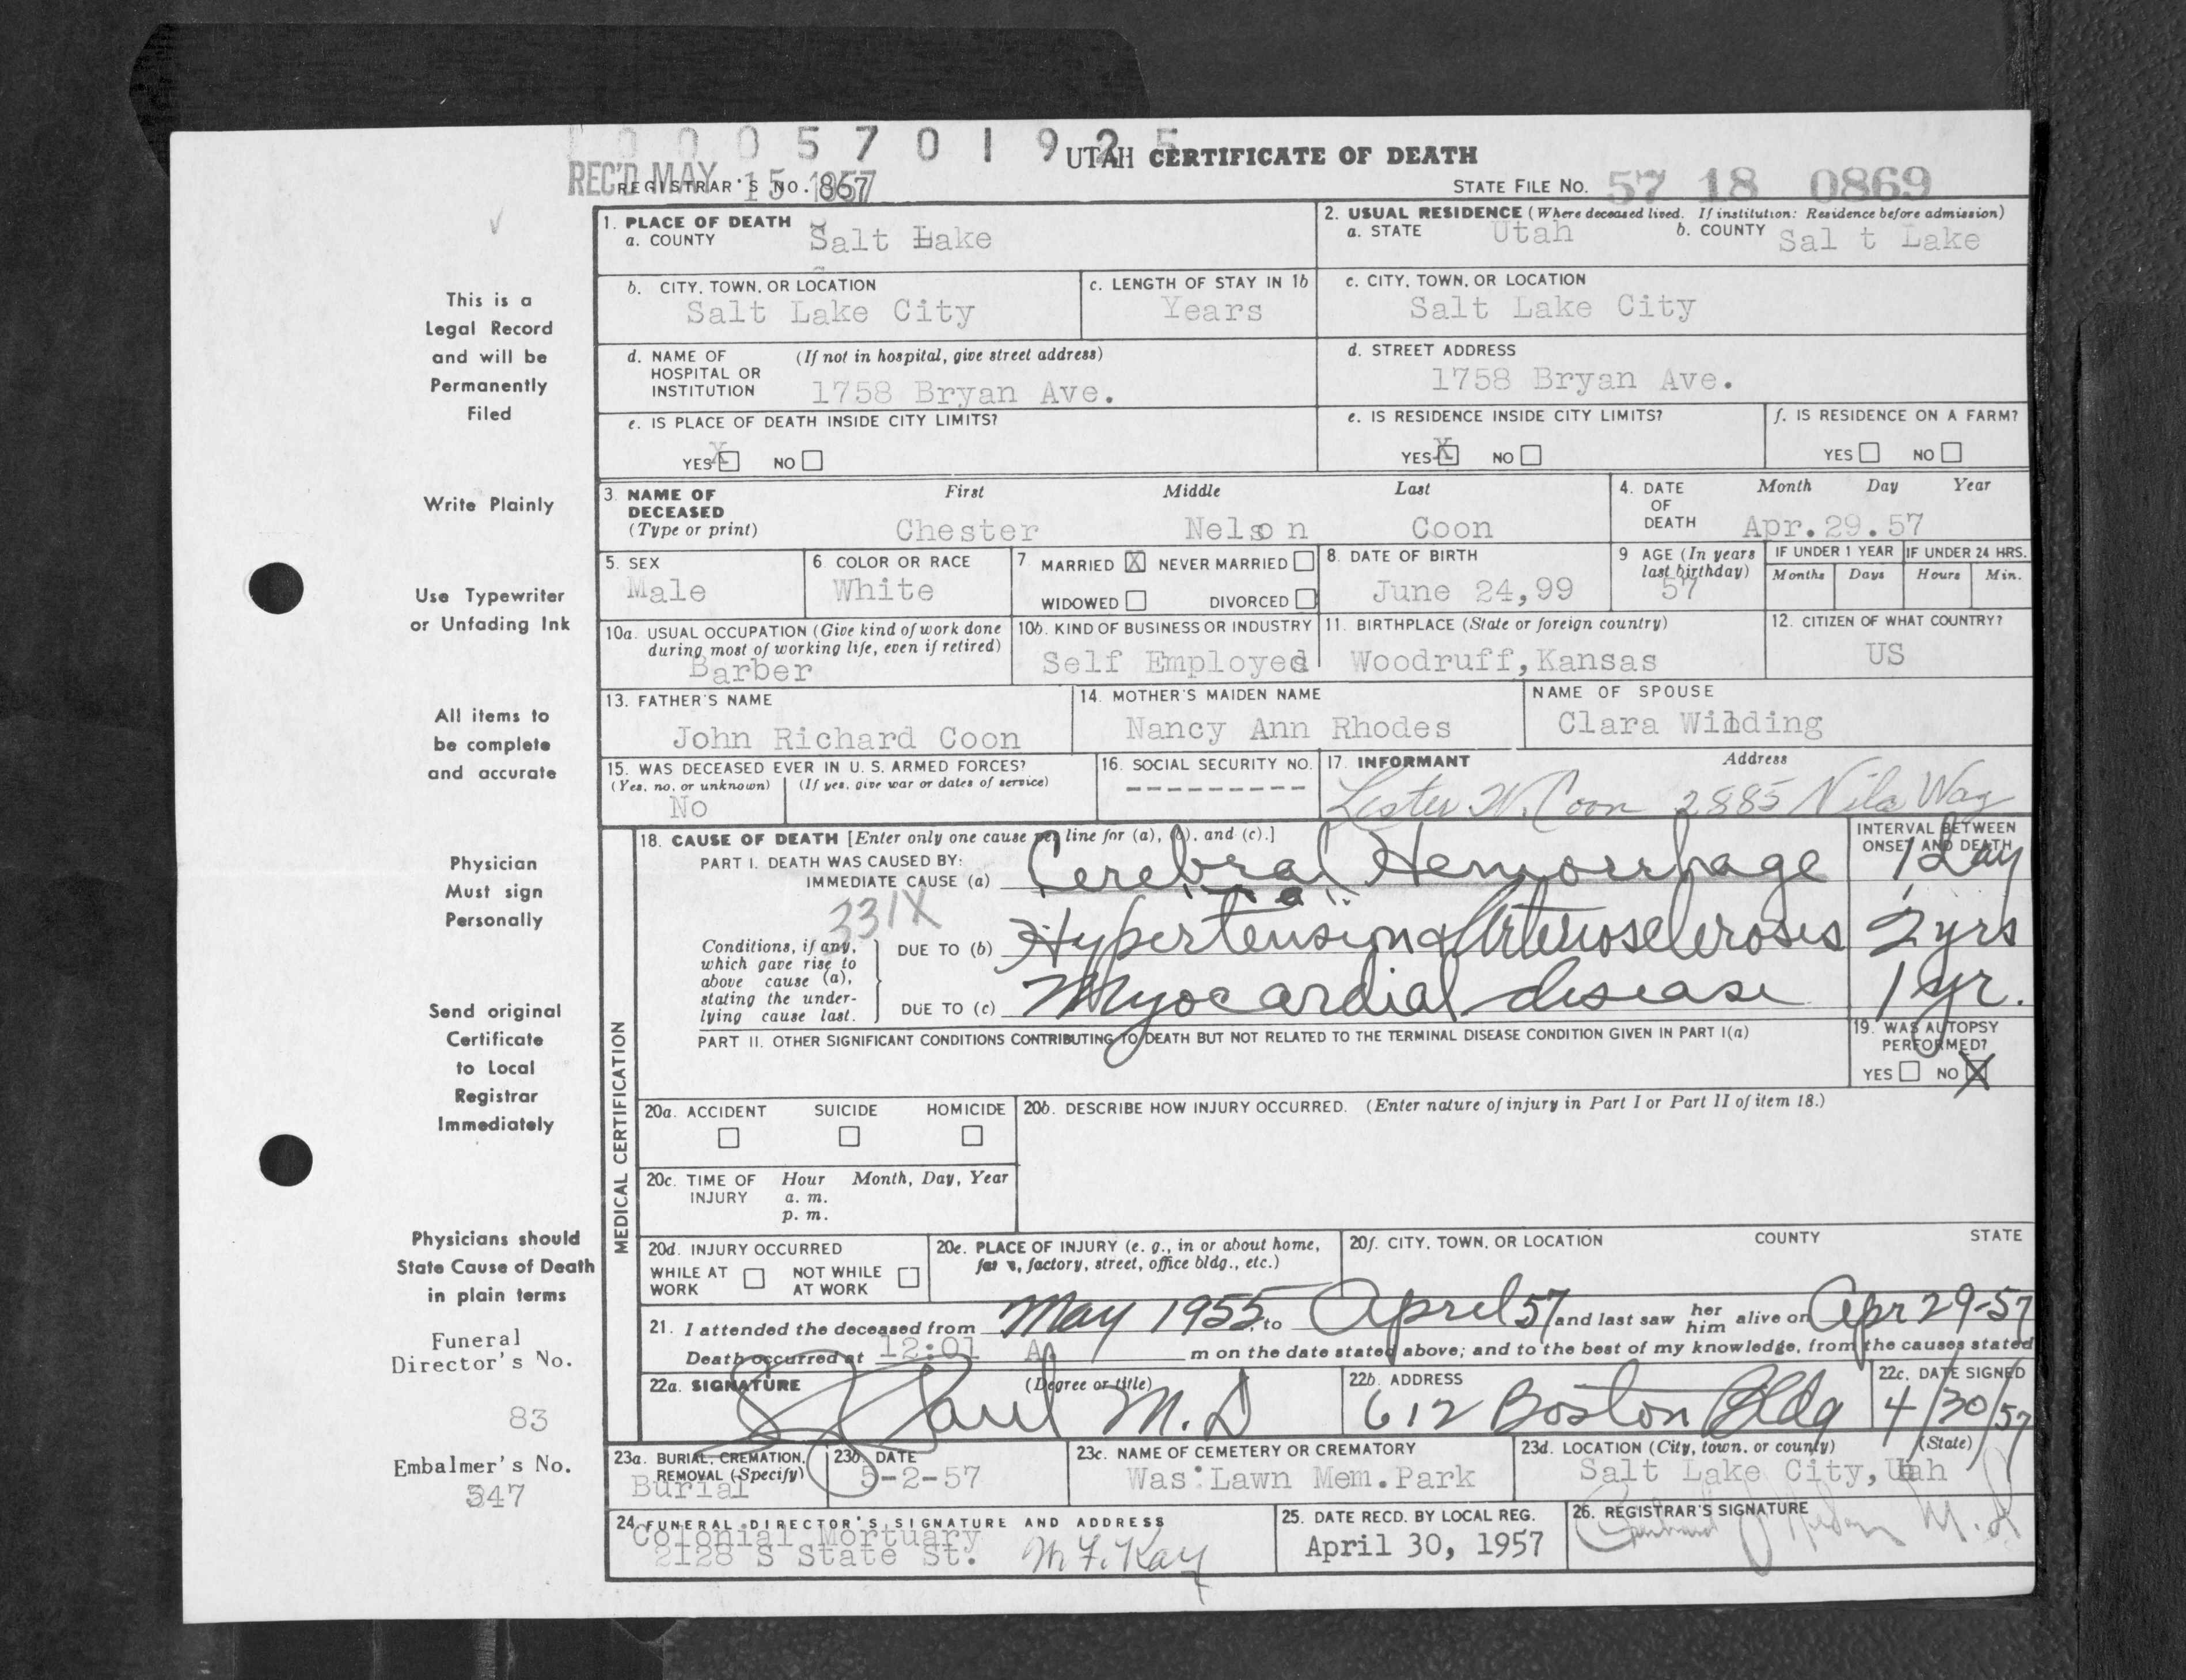 0 0 0 5 7 0 1 9 2 5
UTAH CERTIFICATE OF DEATH
REC'D MAY 15 1957
REGISTRAR'S NO. 867
STATE FILE NO. 57 18 0869
This is a
Legal Record
and will be
Permanently
Filed
Write Plainly
Use Typewriter
or Unfading Ink
All items to
be complete
and accurate
Physician
Must sign
Personally
Send original
Certificate
to Local
Registrar
Immediately
Physicians should
State Cause of Death
in plain terms
Funeral
Director's No.
83
Embalmer's No.
347
1. PLACE OF DEATH
a. COUNTY Salt Lake
2. USUAL RESIDENCE (Where deceased lived. If institution: Residence before admission)
a. STATE Utah b. COUNTY Sal t Lake
b. CITY, TOWN, OR LOCATION
Salt Lake City
c. LENGTH OF STAY IN 1b
Years
c. CITY, TOWN, OR LOCATION
Salt Lake City
d. NAME OF (If not in hospital, give street address)
HOSPITAL OR
INSTITUTION 1758 Bryan Ave.
d. STREET ADDRESS
1758 Bryan Ave.
e. IS PLACE OF DEATH INSIDE CITY LIMITS?
YES X NO
e. IS RESIDENCE INSIDE CITY LIMITS?
YES X NO
f. IS RESIDENCE ON A FARM?
YES NO
3. NAME OF
DECEASED
(Type or print)
First Middle Last
Chester Nelson Coon
4. DATE
OF
DEATH
Month Day Year
Apr.29.57
5. SEX
Male
6. COLOR OR RACE
White
7 MARRIED X NEVER MARRIED
WIDOWED DIVORCED
8. DATE OF BIRTH
June 24,99
9 AGE (In years
last birthday)
57
IF UNDER 1 YEAR
Months Days
IF UNDER 24 HRS.
Hours Min.
10a. USUAL OCCUPATION (Give kind of work done
during most of working life, even if retired)
Barber
10b. KIND OF BUSINESS OR INDUSTRY
Self Employed
11. BIRTHPLACE (State or foreign country)
Woodruff,Kansas
12. CITIZEN OF WHAT COUNTRY?
US
13. FATHER'S NAME
John Richard Coon
14. MOTHER'S MAIDEN NAME
Nancy Ann Rhodes
NAME OF SPOUSE
Clara Wilding
15. WAS DECEASED EVER IN U. S. ARMED FORCES?
(Yes, no, or unknown) (If yes, give war or dates of service)
No
16. SOCIAL SECURITY NO.
---------
17. INFORMANT Address
Lester W. Coon 2885 Nila Way
MEDICAL CERTIFICATION
18. CAUSE OF DEATH [Enter only one cause per line for (a), (b), and (c).]
PART I. DEATH WAS CAUSED BY:
IMMEDIATE CAUSE (a) Cerebral Hemorrhage
INTERVAL BETWEEN
ONSET AND DEATH
1 day
331X
Conditions, if any,
which gave rise to
above cause (a),
stating the under-
lying cause last.
DUE TO (b) Hypertension & Arteriosclerosis 2 yrs
DUE TO (c) Myocardial disease 1 yr.
PART II. OTHER SIGNIFICANT CONDITIONS CONTRIBUTING TO DEATH BUT NOT RELATED TO THE TERMINAL DISEASE CONDITION GIVEN IN PART I(a)
19. WAS AUTOPSY
PERFORMED?
YES NO X
20a. ACCIDENT SUICIDE HOMICIDE
20b. DESCRIBE HOW INJURY OCCURRED. (Enter nature of injury in Part I or Part II of item 18.)
20c. TIME OF Hour Month, Day, Year
INJURY a. m.
p. m.
20d. INJURY OCCURRED
WHILE AT NOT WHILE
WORK AT WORK
20e. PLACE OF INJURY (e. g., in or about home,
farm, factory, street, office bldg., etc.)
20f. CITY, TOWN, OR LOCATION COUNTY STATE
21. I attended the deceased from May 1955, to April 57 and last saw her him alive on Apr 29-57
Death occurred at 12:01 A. m on the date stated above; and to the best of my knowledge, from the causes stated
22a. SIGNATURE (Degree or title)
Paul M.D
22b. ADDRESS
612 Boston Bldg
22c. DATE SIGNED
4/30/57
23a. BURIAL, CREMATION,
REMOVAL (Specify)
Burial
23b DATE
5-2-57
23c. NAME OF CEMETERY OR CREMATORY
Was. Lawn Mem.Park
23d. LOCATION (City, town, or county) (State)
Salt Lake City,Utah
24. FUNERAL DIRECTOR'S SIGNATURE AND ADDRESS
Colonial Mortuary
2128 S State St. M. F. Kay
25. DATE RECD. BY LOCAL REG.
April 30, 1957
26. REGISTRAR'S SIGNATURE
M.D